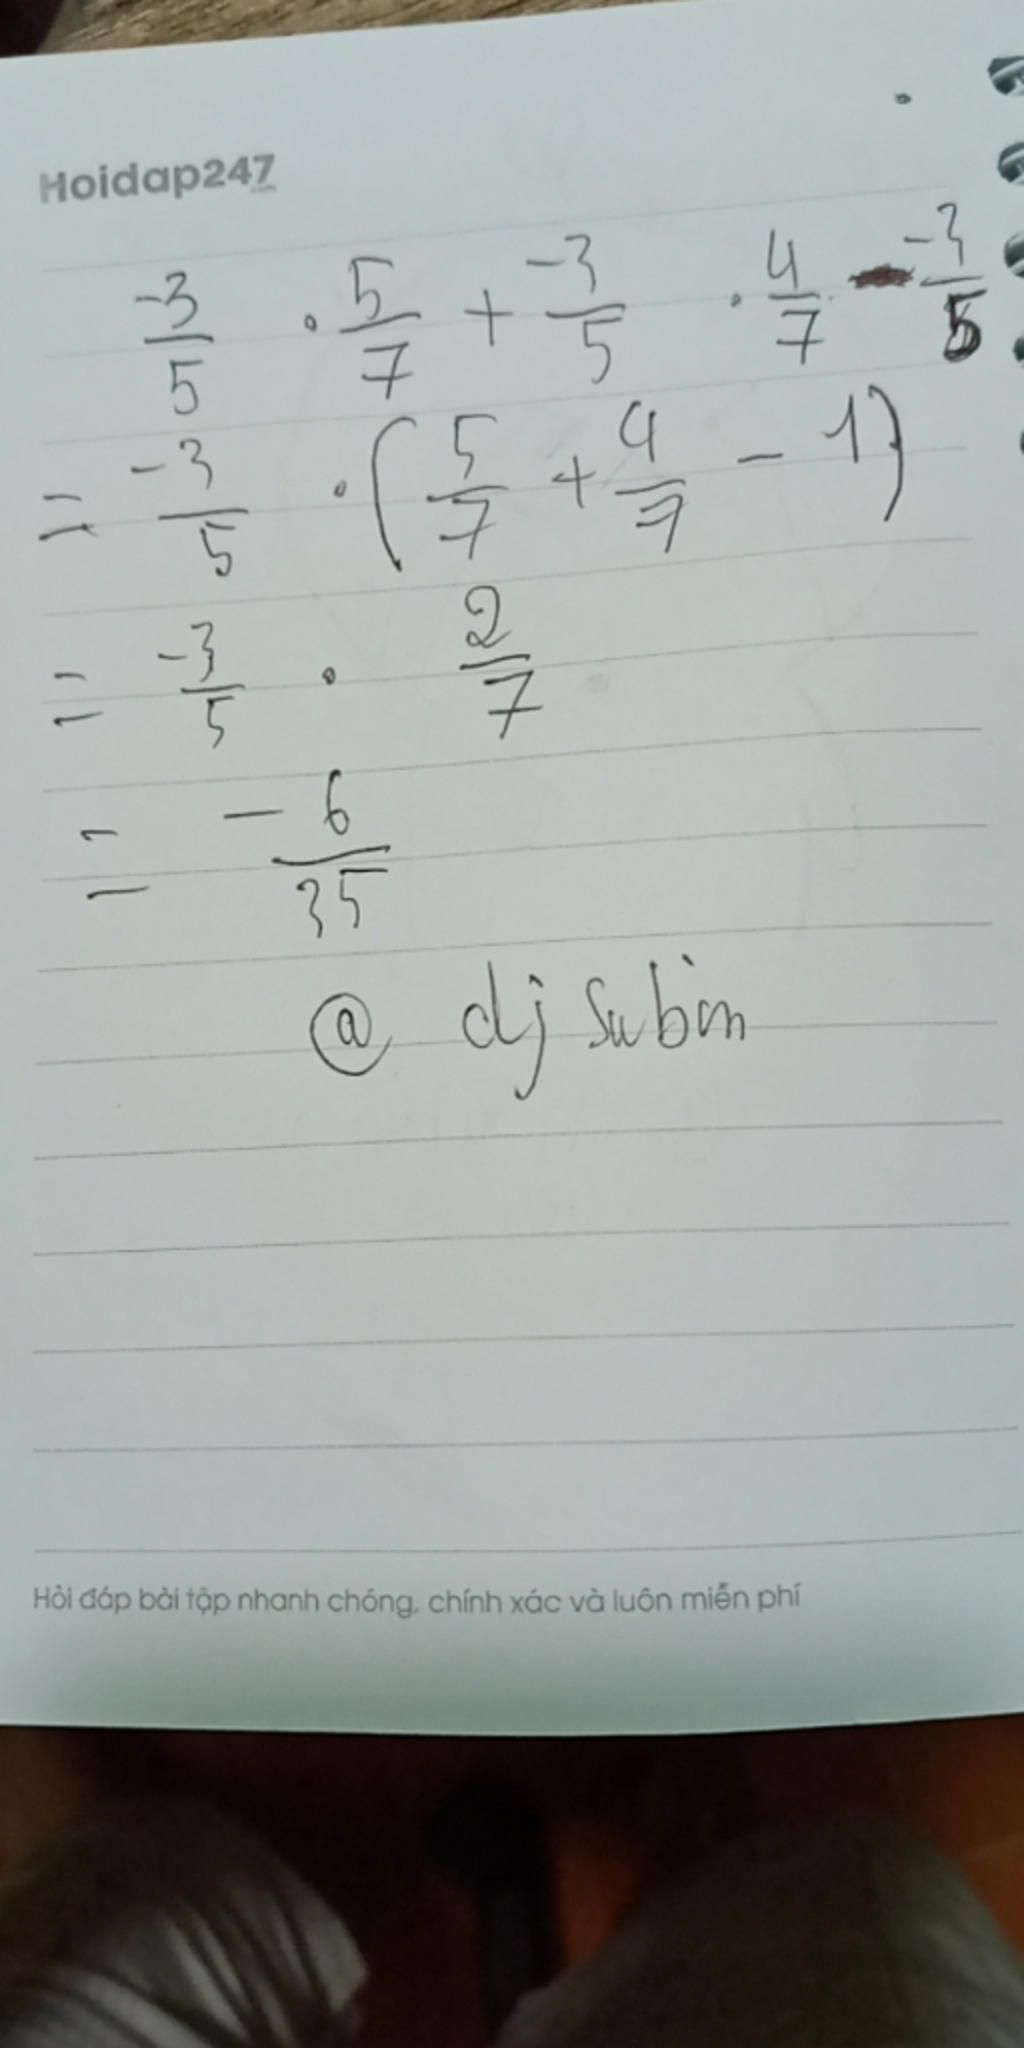 Hoidap247
.com
-3/5 . 5/7 + -3/5 . 4/7 - -3/5
= -3/5 . (5/7 + 4/7 - 1)
= -3/5 . 2/7
= -6/35
@ dj Subin
Hỏi đáp bài tập nhanh chóng, chính xác và luôn miễn phí